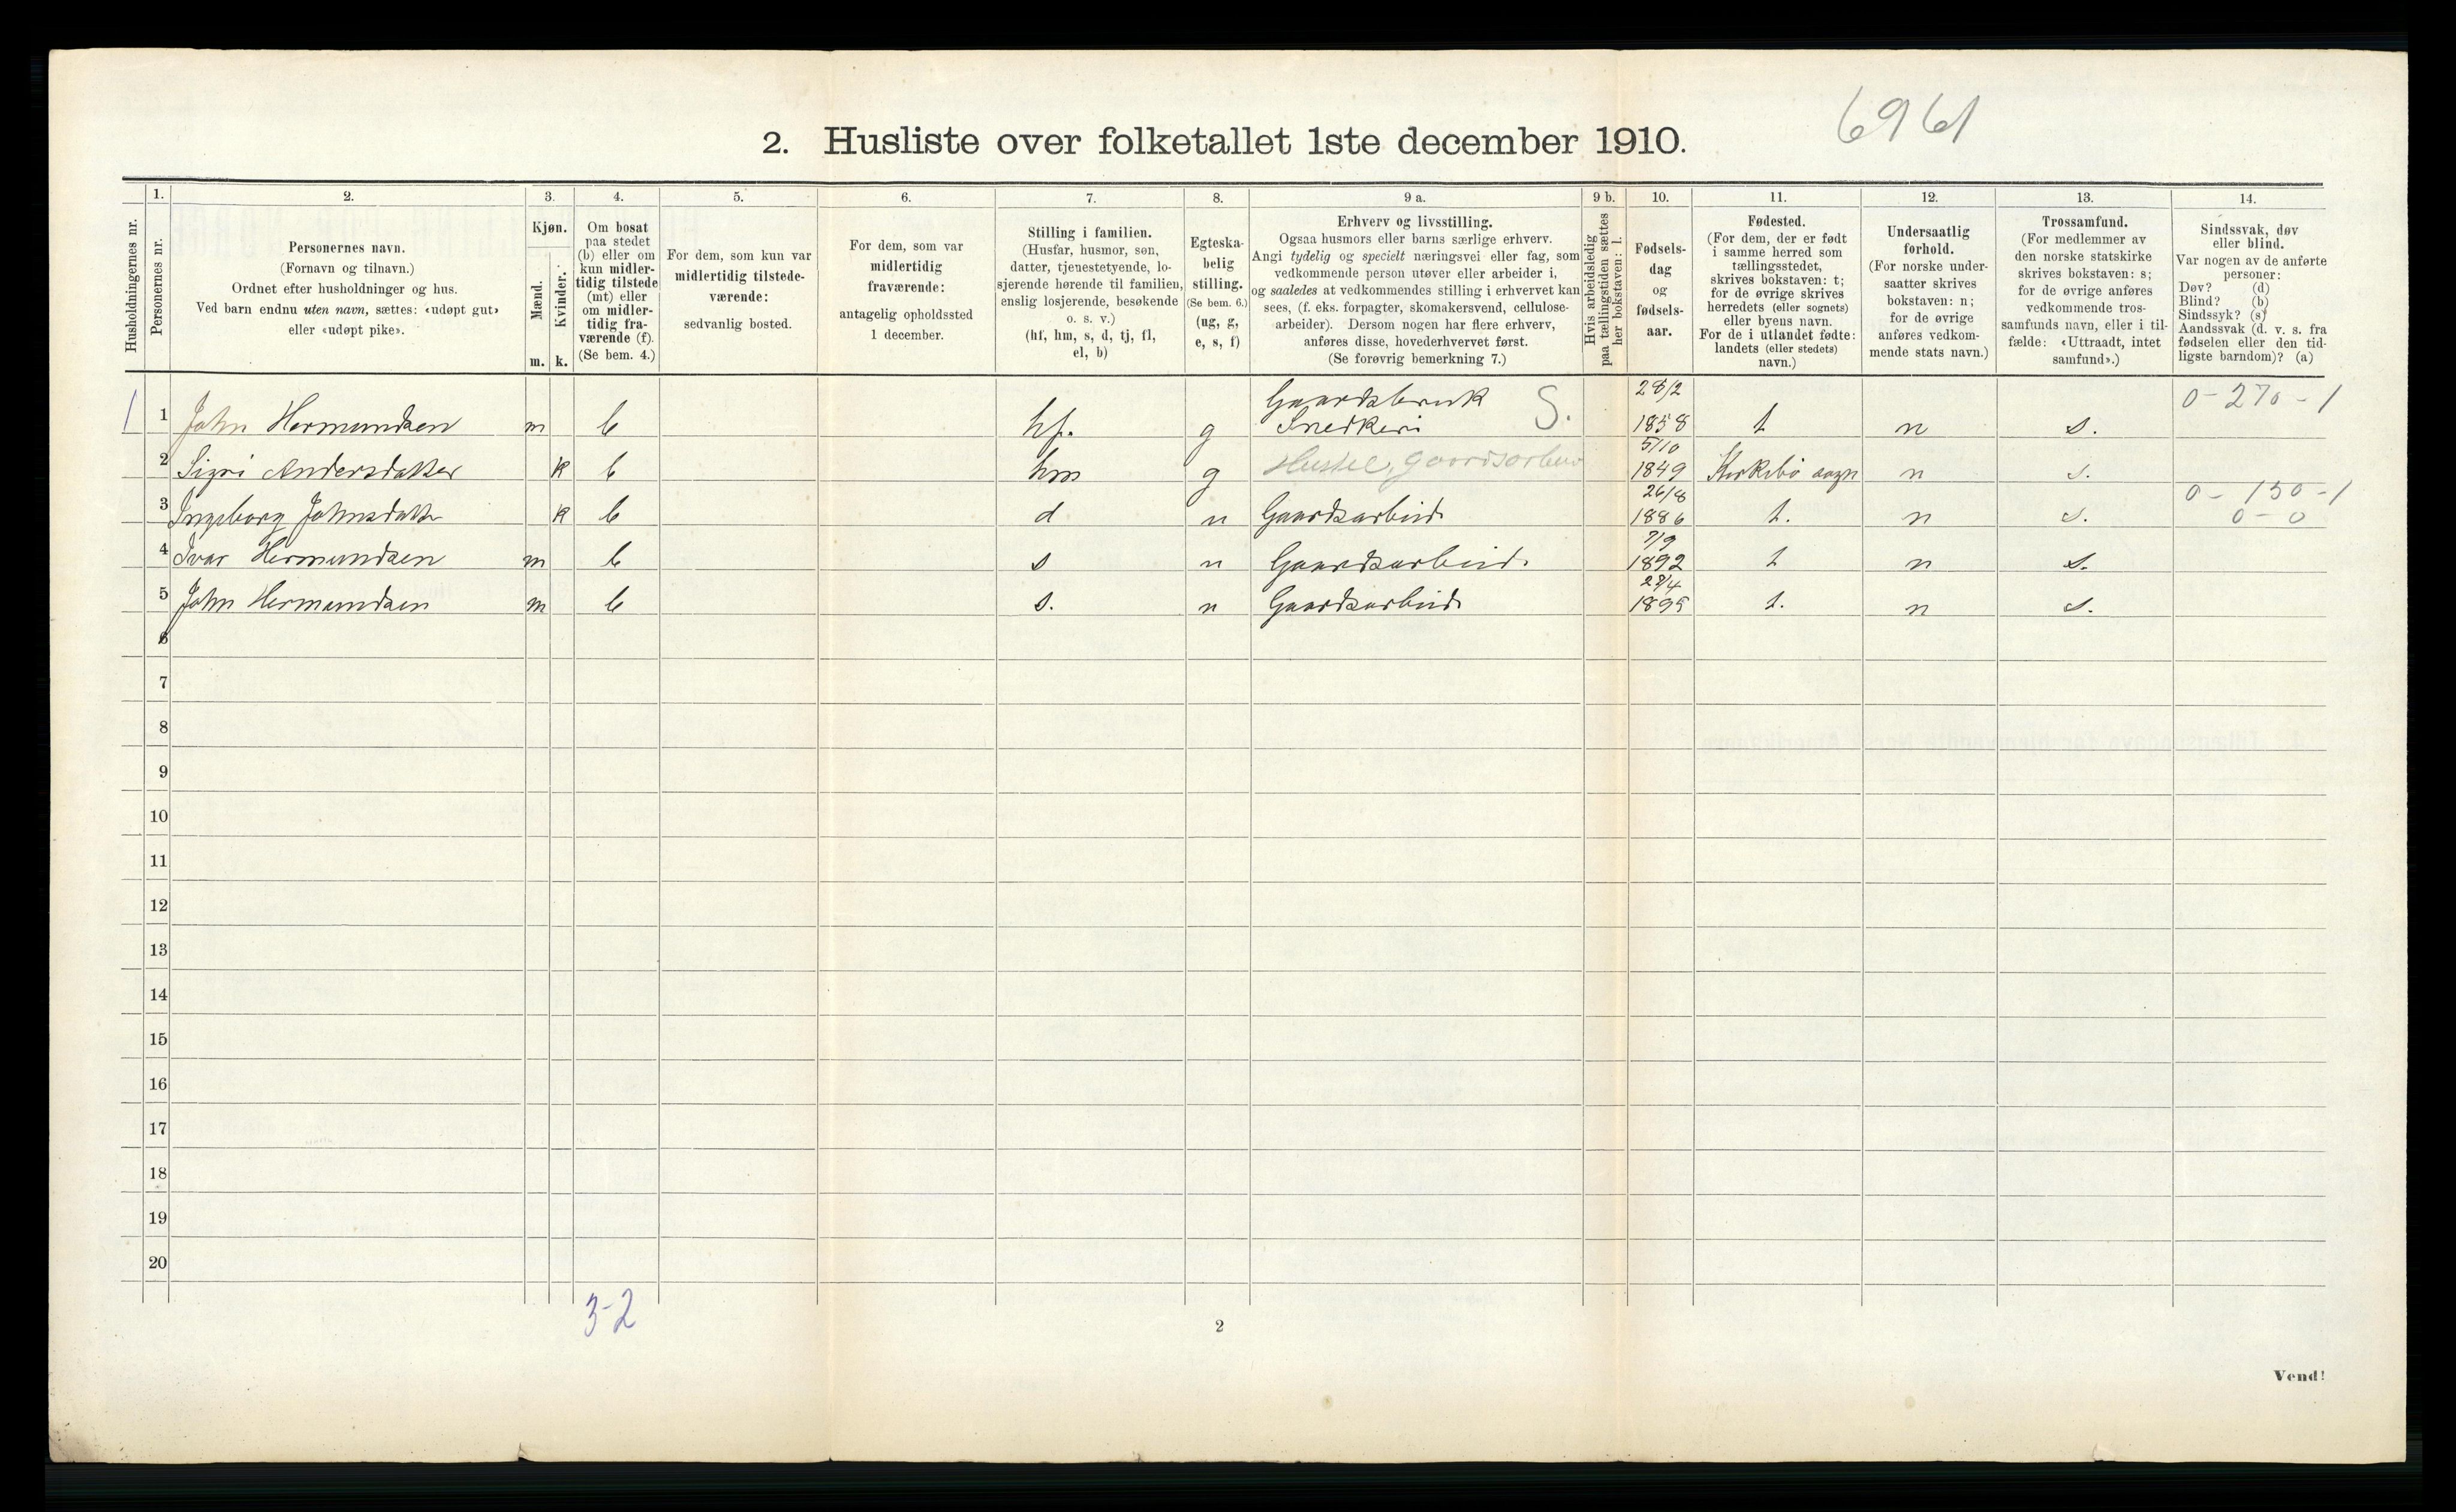 6961
2. Husliste over folketallet 1ste december 1910.
Husholdningernes nr.
1.
Personernes nr.
2.
Personernes navn.
(Fornavn og tilnavn.)
Ordnet efter husholdninger og hus.
Ved barn endnu uten navn, sættes: «udøpt gut»
eller «udøpt pike».
3.
Kjøn.
Mænd.
m.
Kvinder.
k.
4.
Om bosat
paa stedet
(b) eller om
kun midler-
tidig tilstede
(mt) eller
om midler-
tidig fra-
værende (f).
(Se bem. 4.)
5.
For dem, som kun var
midlertidig tilstede-
værende:
sedvanlig bosted.
6.
For dem, som var
midlertidig
fraværende:
antagelig opholdssted
1 december.
7.
Stilling i familien.
(Husfar, husmor, søn,
datter, tjenestetyende, lo-
sjerende hørende til familien,
enslig losjerende, besøkende
o. s. v.)
(hf, hm, s, d, tj, fl,
el, b)
8.
Egteska-
belig
stilling.
(Se bem. 6.)
(ug, g,
e, s, f)
9 a.
Erhverv og livsstilling.
Ogsaa husmors eller barns særlige erhverv.
Angi tydelig og specielt næringsvei eller fag, som
vedkommende person utøver eller arbeider i,
og saaledes at vedkommendes stilling i erhvervet kan
sees, (f. eks. forpagter, skomakersvend, cellulose-
arbeider). Dersom nogen har flere erhverv,
anføres disse, hovederhvervet først.
(Se forøvrig bemerkning 7.)
9 b.
Hvis arbeidsledig
paa tællingstiden sættes
her bokstaven: l.
10.
Fødsels-
dag
og
fødsels-
aar.
11.
Fødested.
(For dem, der er født
i samme herred som
tællingsstedet,
skrives bokstaven: t;
for de øvrige skrives
herredets (eller sognets)
eller byens navn.
For de i utlandet fødte:
landets (eller stedets)
navn.)
12.
Undersaatlig
forhold.
(For norske under-
saatter skrives
bokstaven: n;
for de øvrige
anføres vedkom-
mende stats navn.)
13.
Trossamfund.
(For medlemmer av
den norske statskirke
skrives bokstaven: s;
for de øvrige anføres
vedkommende tros-
samfunds navn, eller i til-
fælde: «Uttraadt, intet
samfund».)
14.
Sindssvak, døv
eller blind.
Var nogen av de anførte
personer:
Døv? (d)
Blind? (b)
Sindssyk? (s)
Aandssvak (d. v. s. fra
fødselen eller den tid-
ligste barndom)? (a)
Gaardsbruk S. 28/2 0-270-1
1 1 John Hermundsen m b hf. g Snedkeri 1858 t n s.
5/10
2 Sigri Andersdatter k b hm g Husstel, gaardsarbeid 1849 Kirkebø sogn n s.
26/8 0-150-1
3 Ingeborg Johnsdatter k b d u Gaardsarbeid 1886 t. n s. 0-0
7/9
4 Ivar Hermundsen m b s u Gaardsarbeid. 1892 t n s.
5 John Hermundsen m b s. u Gaardsarbeid 1895 t. n s.
6
7
8
9
10
11
12
13
14
15
16
17
18
19
20
3-2
2
Vend!